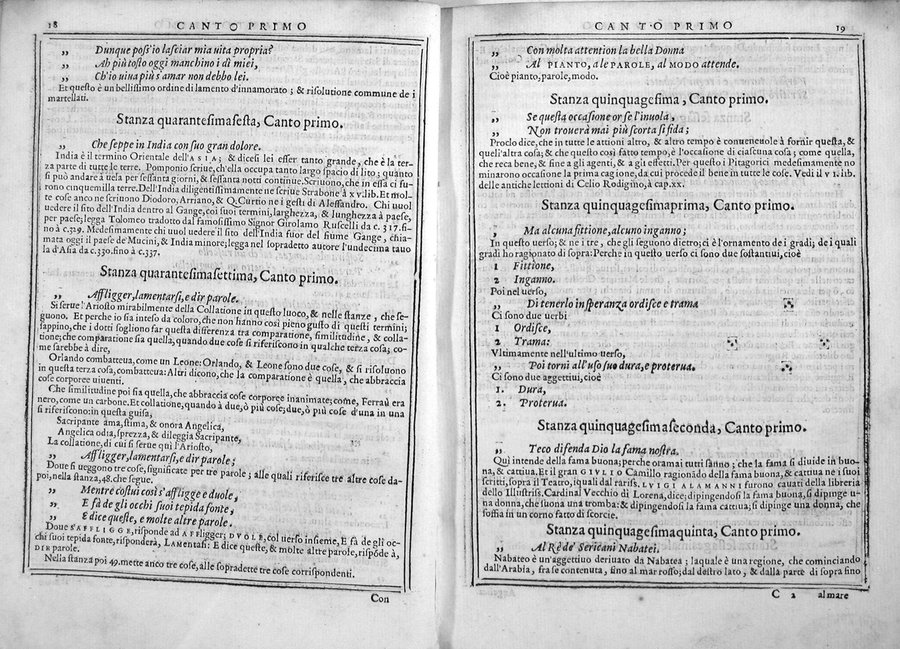 18 CANTO PRIMO
,, Dunque poss'io lasciar mia uita propria?
,, Ah più tosto oggi manchino i dì miei,
,, Ch'io uiua più s'amar non debbo lei.
Et questo è un bellissimo ordine di lamento d'innamorato; & risolutione commune de i
martellati.
Stanza quarantesimasesta, Canto primo.
,, Che seppe in India con suo gran dolore.
India è il termino Orientale dell'ASIA; & dicesi lei esser tanto grande, che è la ter-
za parte di tutte le terre. Pomponio scriue, ch'ella occupa tanto largo spacio di lito; quanto
si può andare à uela per sessanta giorni, & sessanta notti continue. Scriuono, che in essa ci fu-
rono cinquemilla terre. Dell'India diligentissimamente ne scriue Strabone à xv. lib. Et mol-
te cose anco ne scriuono Diodoro, Arriano, & Q. Curtio ne i gesti di Alessandro. Chi uuol
uedere il sito dell'India dentro al Gange, coi suoi termini, larghezza, & lunghezza à paese,
per paese; legga Tolomeo tradotto dal famosissimo Signor Girolamo Ruscelli da c. 317. si-
no à c. 329. Medesimamente chi uuol uedere il sito dell'India fuor del fiume Gange, chia-
mata oggi il paese de Mucini, & India minore; legga nel sopradetto autore l'undecima tauo
la d'Asia da c. 330. fino à c. 337.
Stanza quarantesimasettima, Canto primo.
,, Affligger, lamentarsi, e dir parole.
Si serue l'Ariosto mirabilmente della Collatione in questo luoco, & nelle stanze, che se-
guono. Et perche io sia inteso da coloro, che non hanno così pieno gusto di questi termini;
sappino, che i dotti sogliono far questa differenza tra comparatione, similitudine, & colla-
tione; che comparatione sia quella, quando due cose si riferiscono in qualche terza cosa; co-
me sarebbe à dire,
Orlando combatteua, come un Leone: Orlando, & Leone sono due cose, & si risoluono
in questa terza cosa, combatteua: Altri dicono, che la comparatione è quella, che abbraccia
cose corporee uiuenti.
Che similitudine poi sia quella, che abbraccia cose corporee inanimate; come, Ferraù era
nero, come un carbone. Et collatione, quando à due, ò più cose; due, ò più cose d'una in una
si riferiscono: in questa guisa,
Sacripante ama, stima, & onora Angelica,
Angelica odia, sprezza, & dileggia Sacripante,
La collatione, di cui si serue quì l'Ariosto,
,, Affligger, lamentarsi, e dir parole;
Doue si ueggono tre cose, significate per tre parole; alle quali riferisce tre altre cose da-
poi, nella stanza, 48. che segue.
,, Mentre costui così s'affligge e duole,
,, E fà de gli occhi suoi tepida fonte,
,, E dice queste, e molte altre parole.
Doue s'AFFLIGGE, risponde ad AFFligger; DVOLE, col uerso insieme, E fà de gli oc-
chi suoi tepida fonte, risponderà, LAMENtarsi: E dice queste, & molte altre parole, rispōde à,
DIR parole.
Nella stanza poi 49. mette anco tre cose, alle sopradette tre cose corrispondenti.
Con
CANTO PRIMO 19
,, Con molta attention la bella Donna
,, Al PIANTO, a le PAROLE, al MODO attende.
Cioè pianto, parole, modo.
Stanza quinquagesima, Canto primo.
,, Se questa occasione or se l'inuola,
,, Non trouerà mai più scorta sì fida;
Proclo dice, che in tutte le attioni altro, & altro tempo è conueneuole à fornir questa, &
quell'altra cosa; & che questo così fatto tempo, è l'occasione di ciascuna cosa; come quella,
che reca bene, & fine à gli agenti, & à gli effetti. Per questo i Pitagorici medesimamente no
minarono occasione la prima cagione, da cui procede il bene in tutte le cose. Vedi il v 1. lib.
delle antiche lettioni di Celio Rodigino, à cap. xx.
Stanza quinquagesimaprima, Canto primo.
,, Ma alcuna fittione, alcuno inganno;
In questo uerso; & ne i tre, che gli seguono dietro; ci è l'ornamento de i gradi, de i quali
gradi ho ragionato di sopra: Perche in questo uerso ci sono due sostantiui, cioè
1 Fittione,
2 Inganno.
Poi nel uerso,
,, Di tenerlo in speranza ordisce e trama
Ci sono due uerbi
1 Ordisce,
2 Trama:
Vltimamente nell'ultimo uerso,
,, Poi torni all'uso suo dura, e proterua.
Ci sono due aggettiui, cioè
1. Dura,
2. Proterua.
Stanza quinquagesimaseconda, Canto primo.
,, Teco difenda Dio la fama nostra.
Quì intende della fama buona; perche oramai tutti sanno; che la fama si diuide in buo-
na, & cattiua. Et il gran GIVLIO Camillo ragionado della fama buona, & cattiua ne i suoi
scritti, sopra il Teatro, iquali dal rariss. LVIGI ALAMANNI furono cauati della libreria
dello Illustriss. Cardinal Vecchio di Lorena, dice; dipingendosi la fama buona, si dipinge u-
na donna, che suona una tromba: & dipingendosi la fama cattiua; si dipinge una donna, che
soffia in un corno fatto di scorcie.
Stanza quinquagesimaquinta, Canto primo.
,, Al Re de' Sericani Nabatei.
Nabateo è un'aggettiuo deriuato da Nabatea; laquale è una regione, che cominciando
dall'Arabia, fra se contenuta, sino al mar rosso; dal destro lato, & dalla parte di sopra sino
C 2 al mare